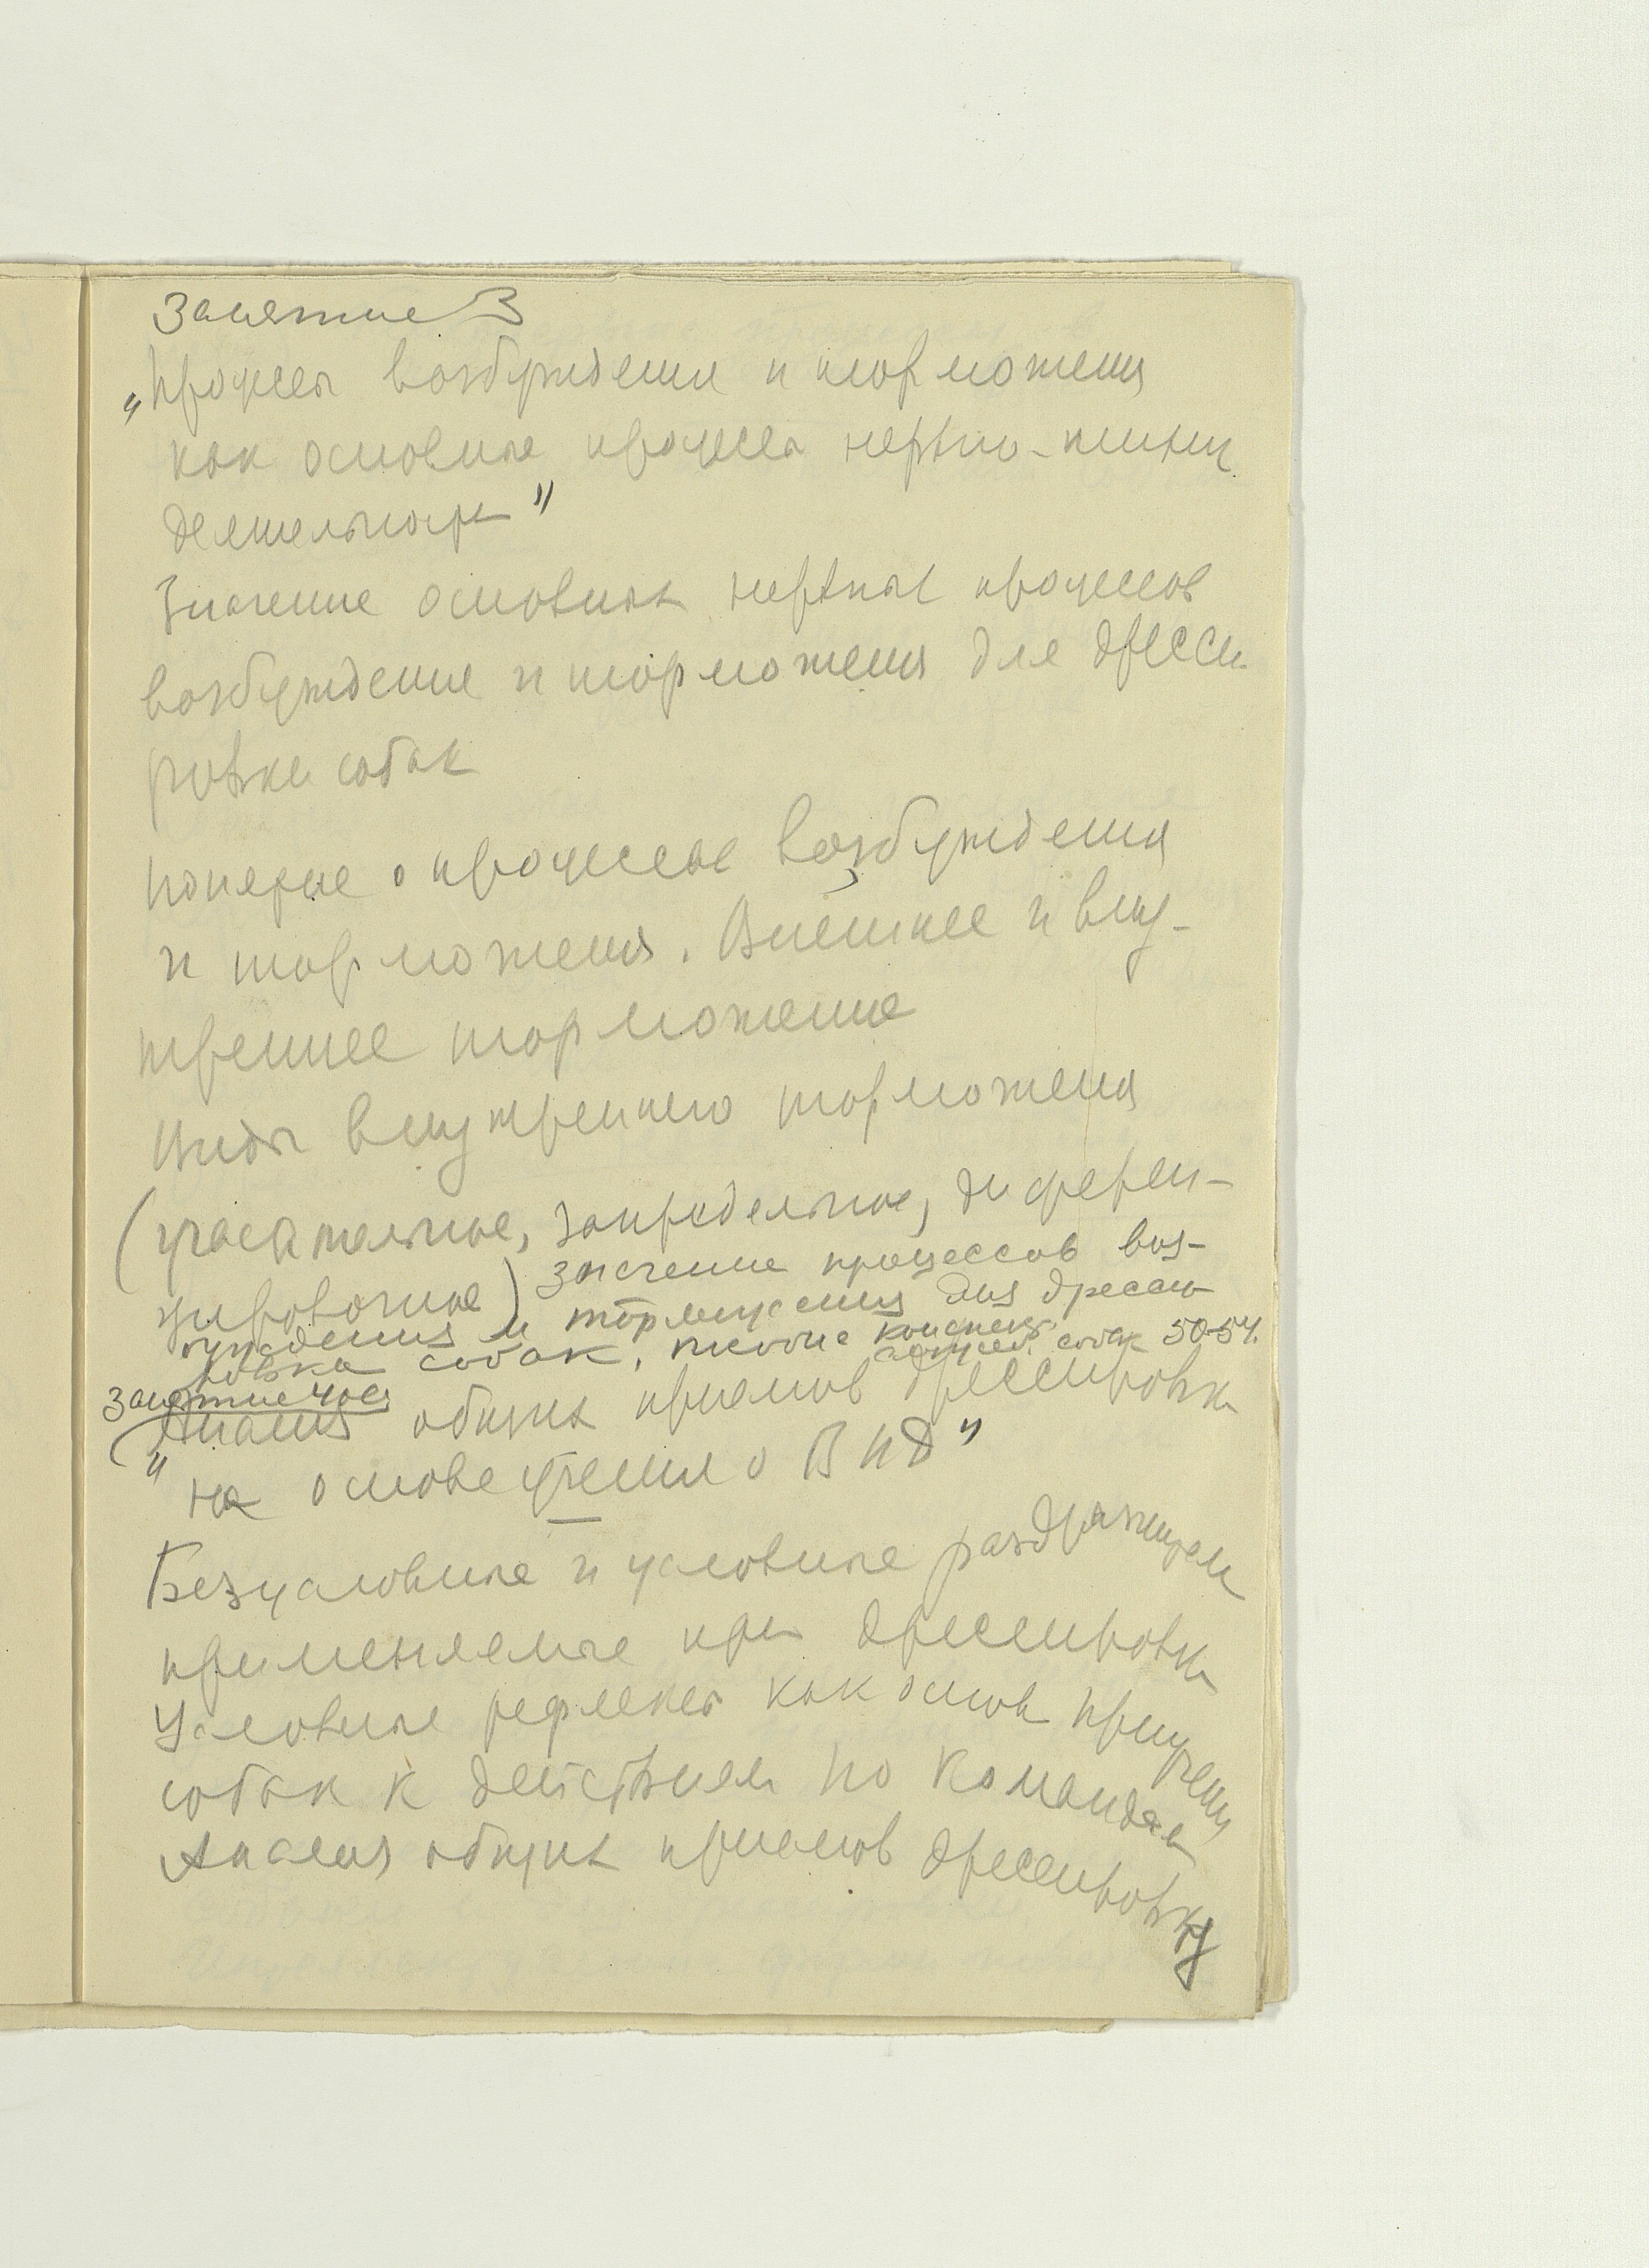 Занятие 3
„Процессы возбуждения и торможения
как основные процессы нервно-психич.
деятельности"
Значение основных нервных процессов
возбуждения и торможения для дресси
ровки собак
Понятие о процессах возбуждения
и торможения. Внешнее и вну-
треннее торможение
Виды внутреннего торможения
(угасательное, запредельное, диферен-
цировочное) Значение процессов воз-
буждения и торможения для дресси-
ровки собак, конспект собак 50-54.
Занятие 4ое
„Анализ общих приемов дрессировки
на основе учения о ВНД"
Безусловные и условные раздражители
применяемые при дрессировки
Условные рефлексы как основа приучения
собак к действиям по командам
Анализ общих приемов дрессировки